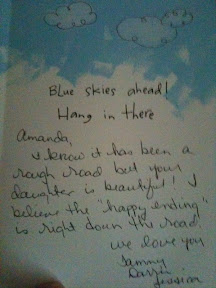 Blue skies ahead!
Hang in there
Amanda,
I know it has been a
rough road but your
daughter is beautiful! I
believe the "happy ending"
is right down the road
we love you
Sammy
Jessica